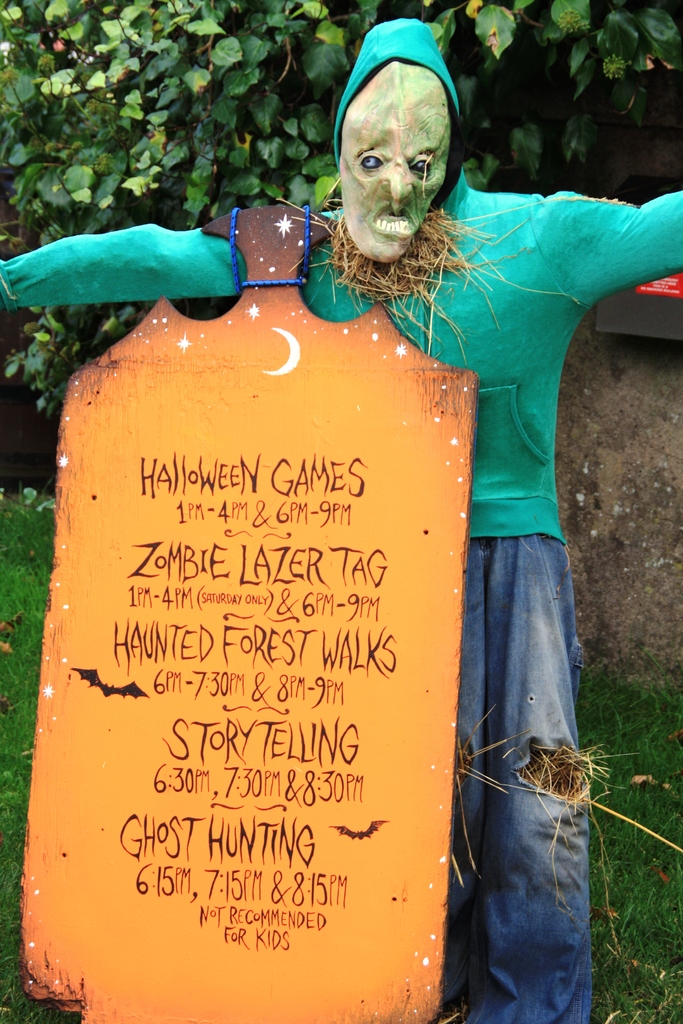 HALLOWEEN GAMES
1PM-4PM & 6PM-9PM
ZOMBIE LAZER TAG
1PM-4PM (SATURDAY ONLY) & 6PM-9PM
HAUNTED FOREST WALKS
6PM-7:30PM & 8PM-9PM
STORYTELLING
6:30PM, 7:30PM & 8:30PM
GHOST HUNTING
6:15PM, 7:15PM & 8:15PM
NOT RECOMMENDED
FOR KIDS